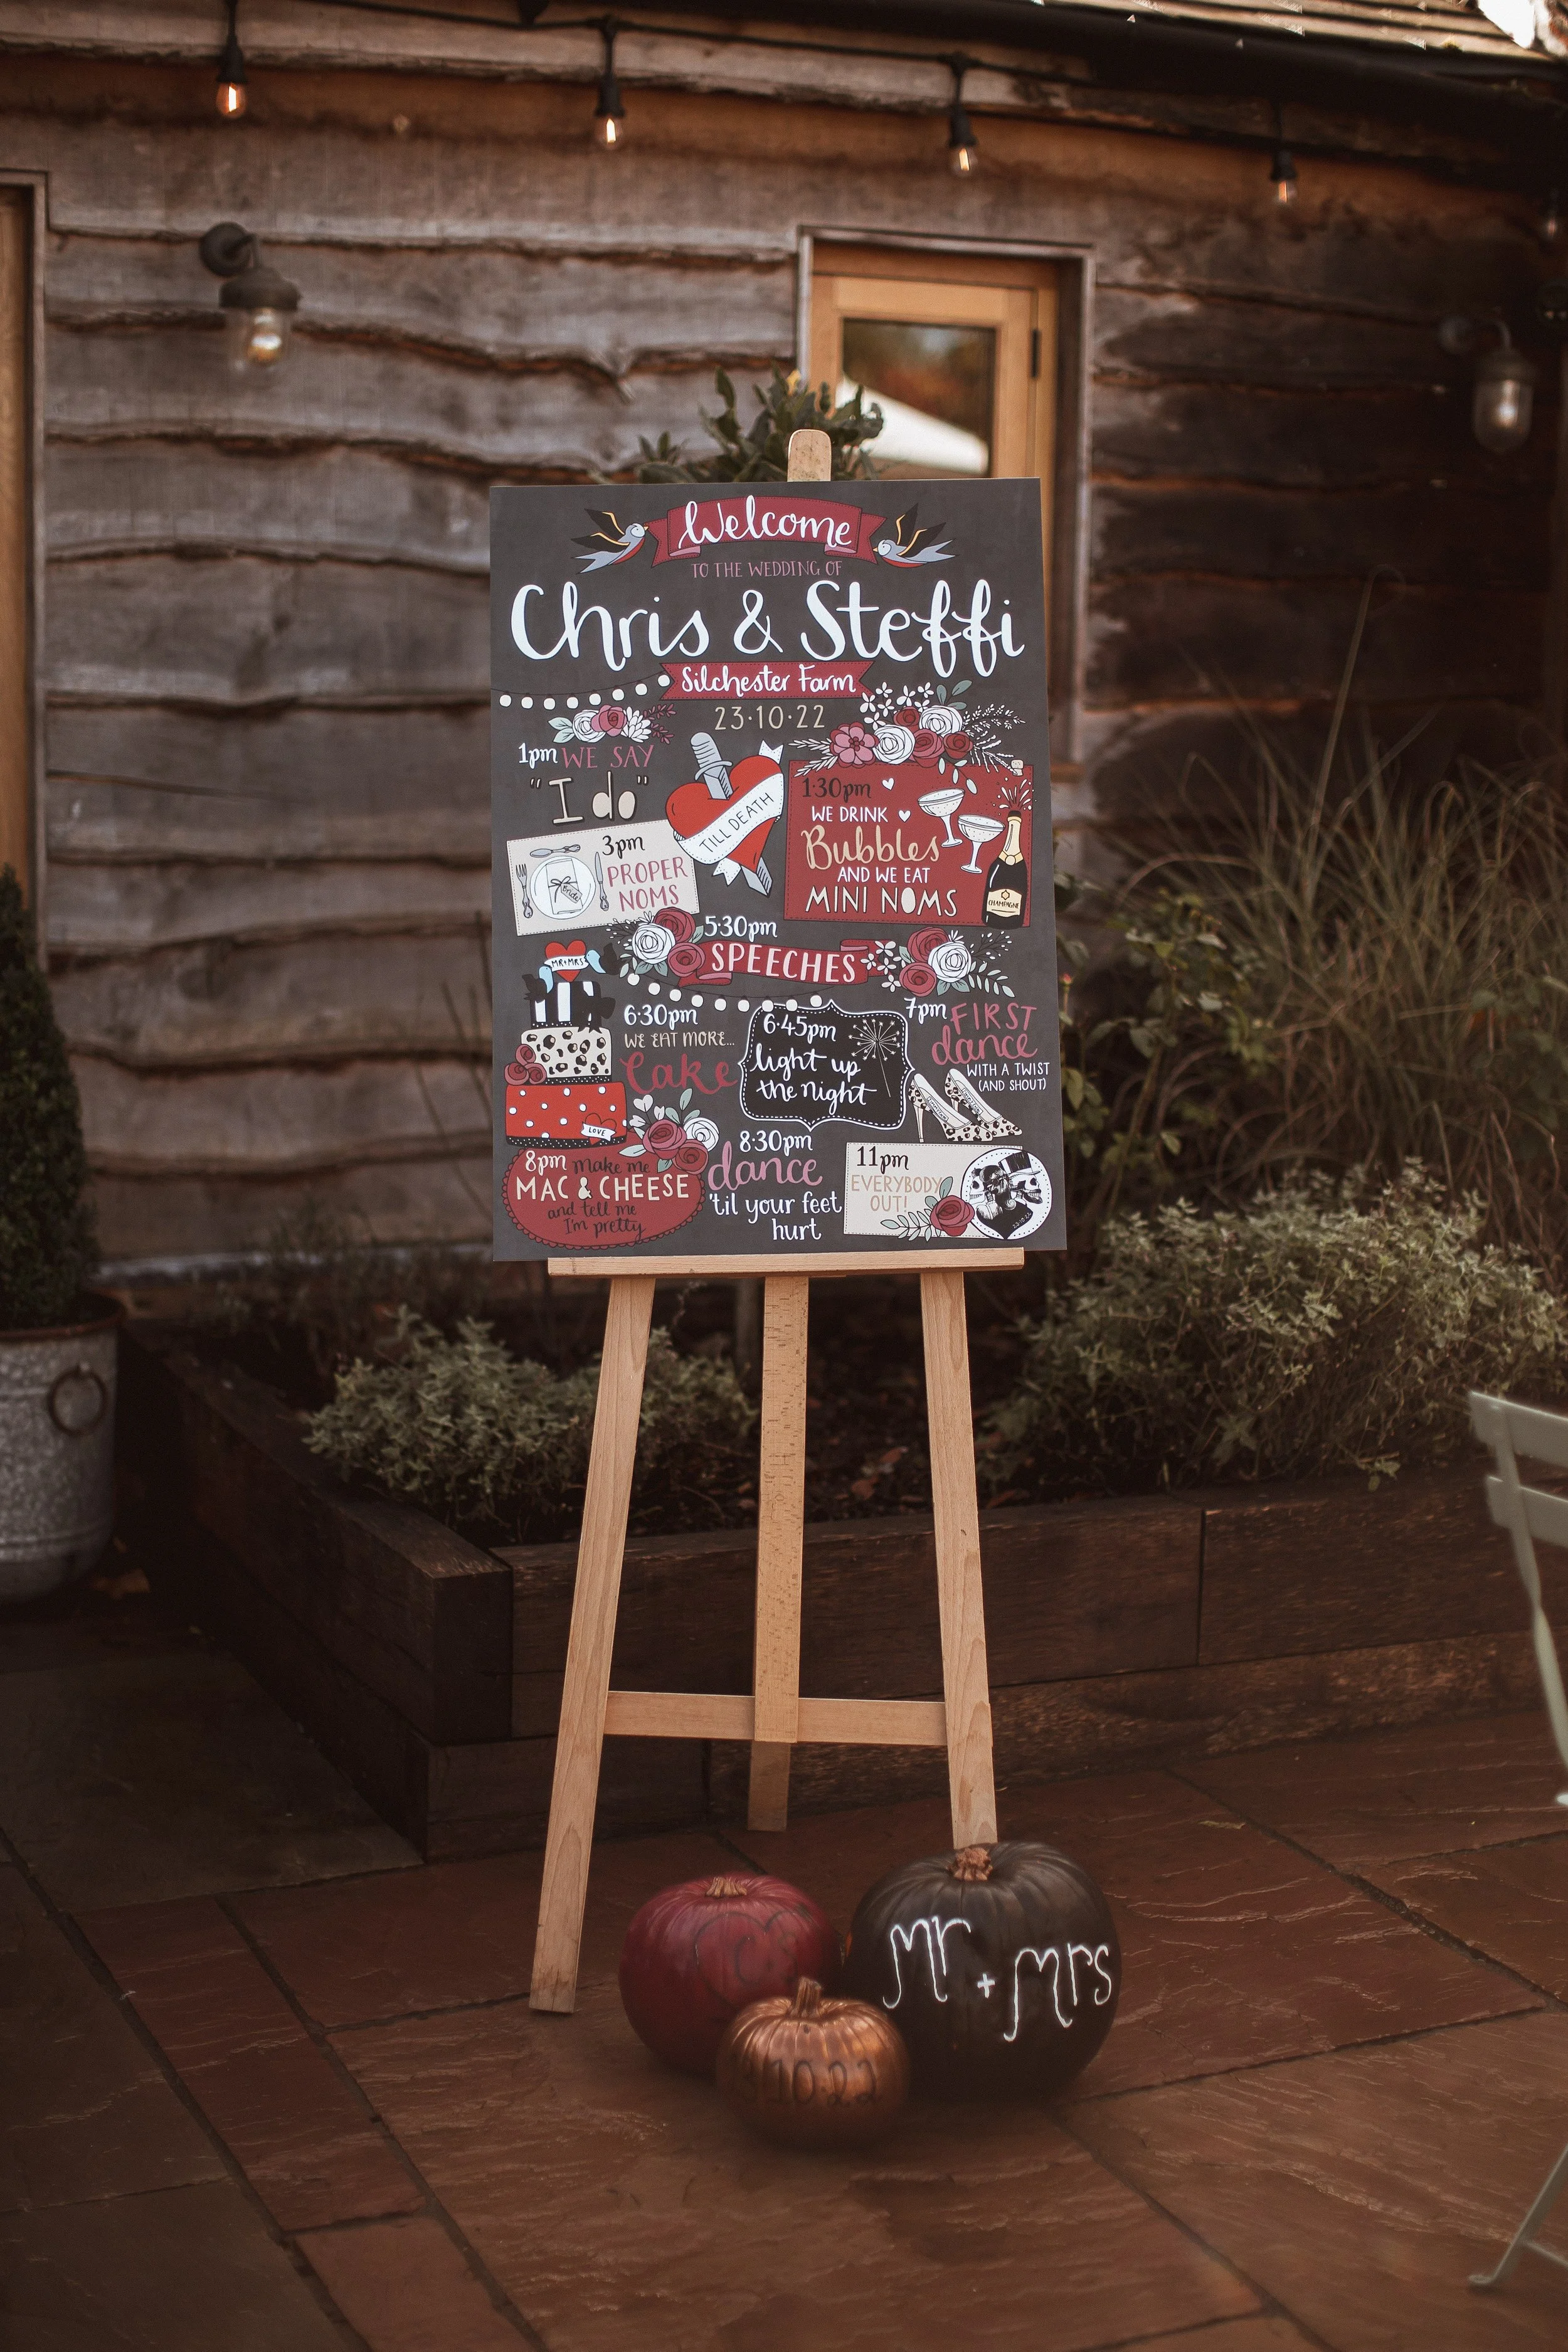 Welcome
TO THE WEDDING OF
Chris & Steffi
Silchester Farm
23·10·22
1pm WE SAY
"I do"
TILL DEATH
1:30pm
WE DRINK
Bubbles
AND WE EAT
MINI NOMS
CHAMPAGNE
3pm
PROPER
NOMS
Bride
5:30pm
SPEECHES
MR+MRS
LOVE
6:30pm
WE EAT MORE...
Cake
6:45pm
light up
the night
7pm FIRST
dance
WITH A TWIST
(AND SHOUT)
8pm make me
MAC & CHEESE
and tell me
I'm pretty
8:30pm
dance
'til your feet
hurt
11pm
EVERYBODY
OUT!
23·10·22
mr + mrs